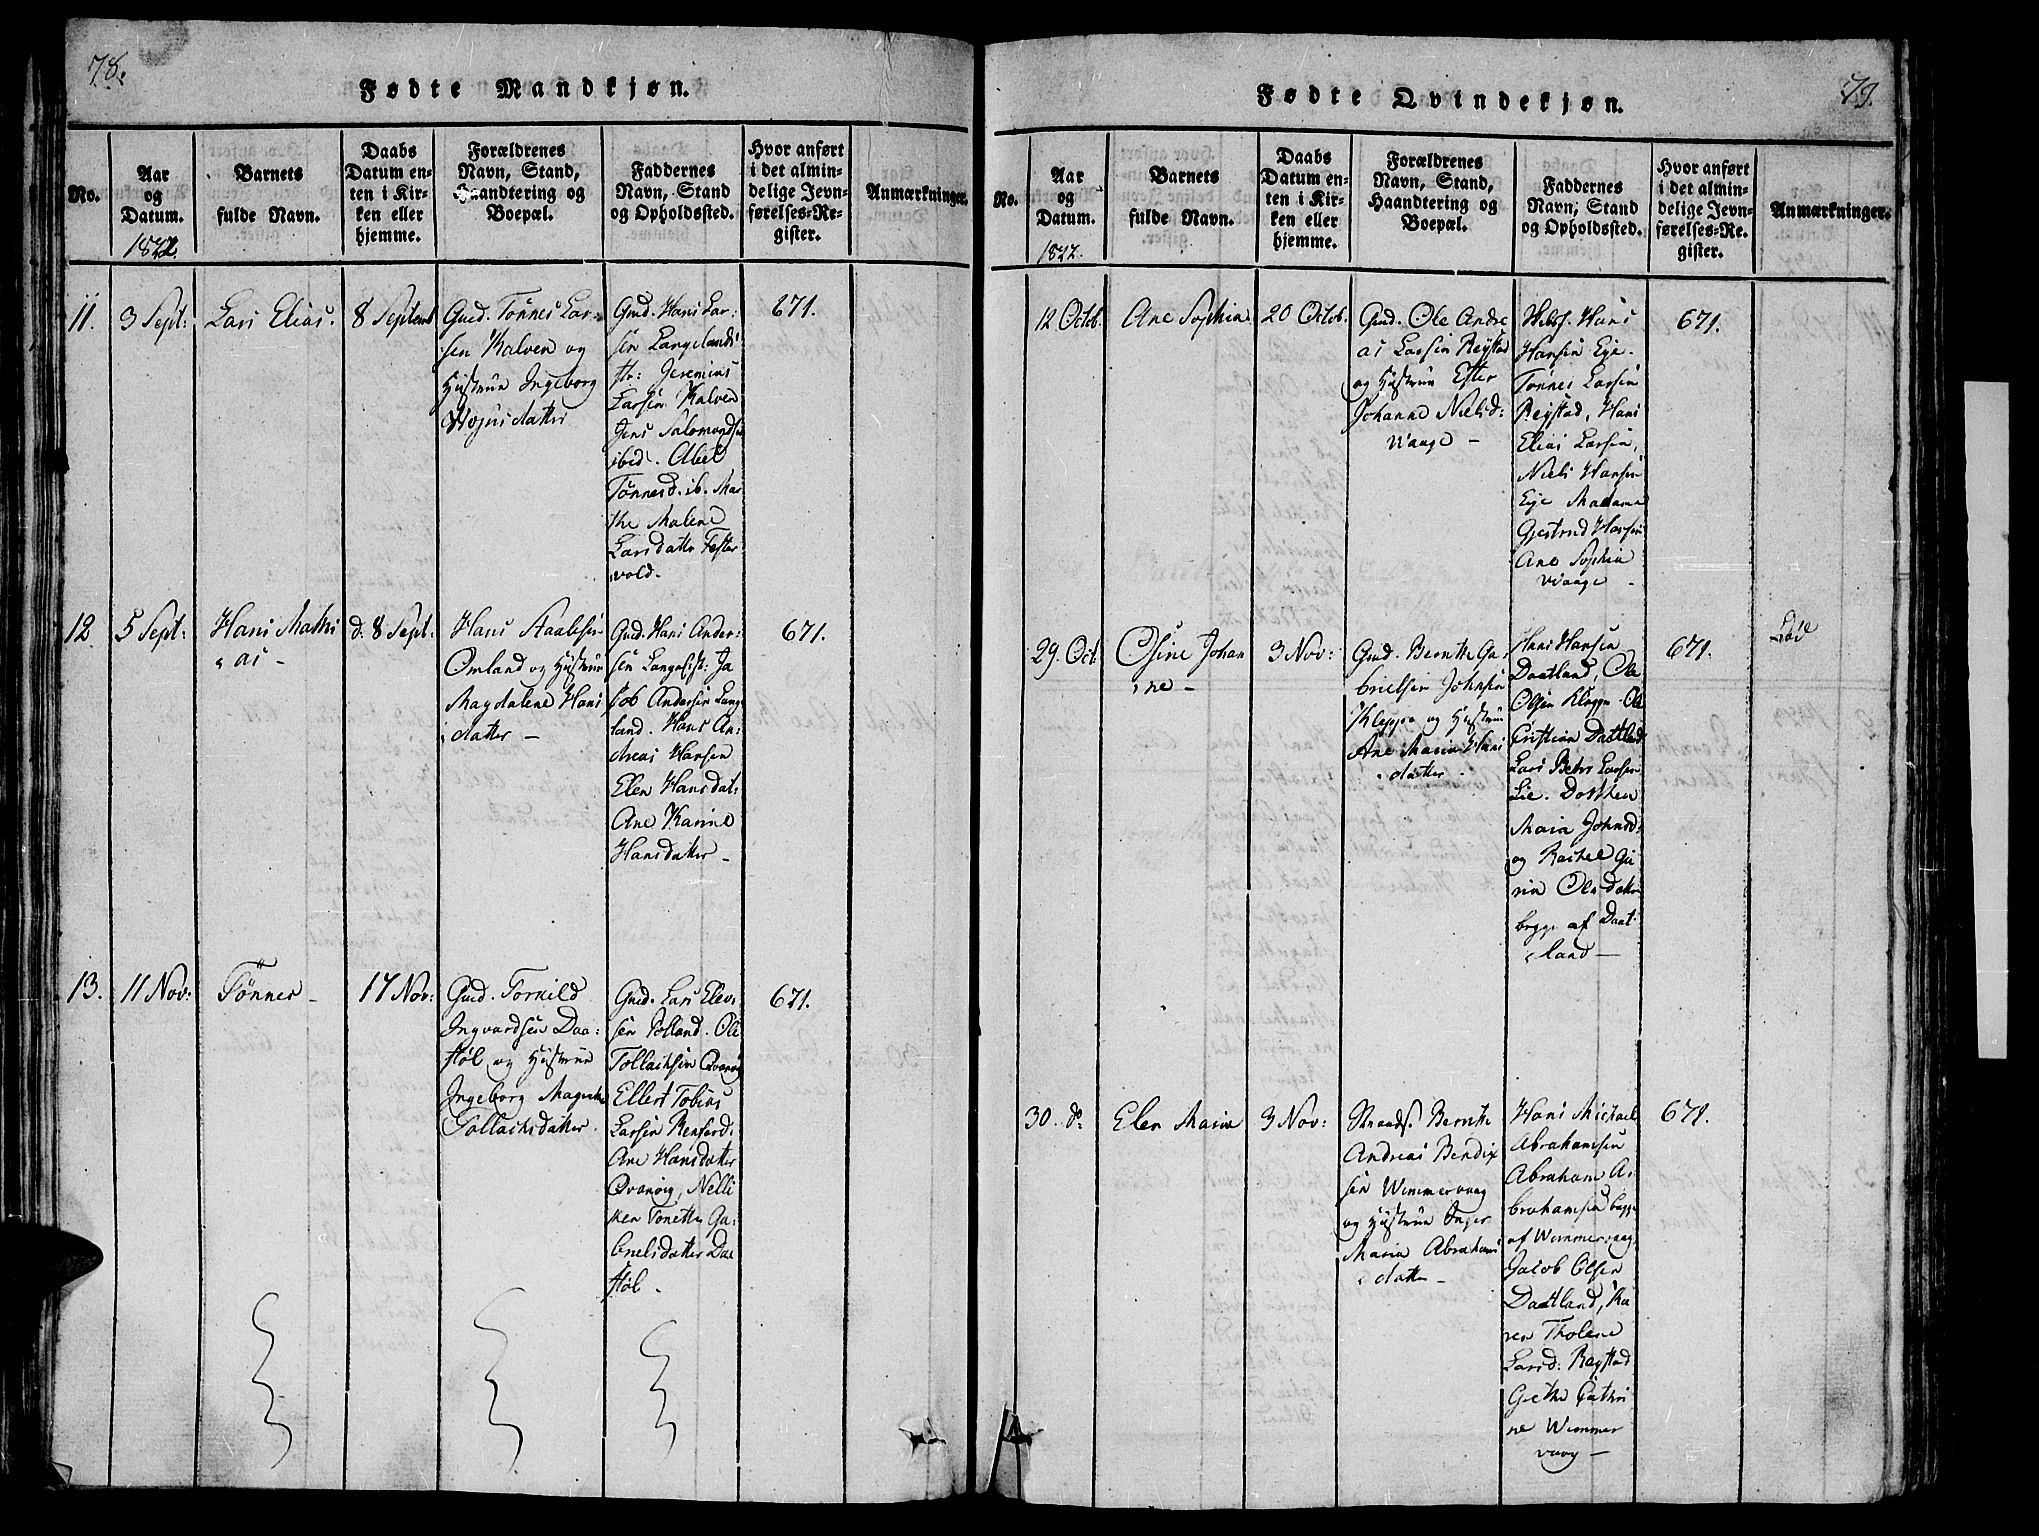 78.
Fødte Mandkjøn.
No.
Aar
og
Datum.
1822.
Barnets
fulde Navn.
Daabs
Datum en-
ten i Kir-
ken eller
hjemme.
Forældrenes
Navn, Stand,
Haandtering og
Boepæl.
Faddernes
Navn, Stand
og Opholdssted.
Hvor anført
i det almin-
delige Jevn-
førelses-Re-
gister.
Anmærkninger.
11.
3 Sept:
Lars Elias.
8 Septemb
Gmd. Tönnes Lar-
sen Kalven og
Hustrue Ingeborg
datter
Gmd. Hans Lar:
sen Langelands
str: Jeremias
Larsen Kalven
Jens Salomonds
ibid. Abel
Tönnesd. ib. Mar
the Malene
Larsdattr Fester
vold.
671.
12
5 Sept:
Hans Mathi
as -
d. 8 Sept:
Hans Aaalesen
Omland og Hustrue
Magdalene Hans
datter -
Gmd. Hans Ander:
sen Ja
kob Andersen Lang
land. Hans An:
dreas Hansen
Elen Hansdat:
Ane Karine
Hansdatter -
671.
13.
11 Nov:
Tönnes -
17 Nov:
Gmd. Torkild
Ingvardsen Daa:
støl og Hustrue
Ingeborg
Tollachsdatter.
Gmd. Lars Elev:
sen Rolland. Ole
Tollachsen Qvanvig
Ellert Tobias
Larsen
Ane Hansdatter
Qvanvig, Nelli
ken Tonette Ga:
brielsdatter Daa
støl -
671.
79.
Fødte Qvindekjøn.
No.
Aar
og
Datum.
1822.
Barnets
fulde Navn.
Daabs
Datum en-
ten i Kir-
ken eller
hjemme.
Forældrenes
Navn, Stand,
Haandtering og
Boepæl.
Faddernes
Navn, Stand
og Opholdssted.
Hvor anført
i det almin-
delige Jevn-
førelses-Re-
gister.
Anmærkninger.
12 Octob.
Ane Sophia
20 Octob.
Gmd. Ole Andre
as Larsen Reystad
og Hustrue Ester
Johanne Nielsd:
Waage -
Hans
Hansen Eye.
Tönnes Larsen
Reystad, Hans
Elias Larsen,
Niels Hansen
Eye Madame
Gjertrud Hansen
Ane Sophia
Waage -
671.
29. Oct
Osine Johan
ne -
3 Nov:
Gmd. Bernth Ga-
brielsen Johnsen
Kleppe og Hustrue
Ane Maria Hans
datter.
Hans Hansen
Daatland, Ole
Olsen Kleppe. Ole
Cristian Daatland
Lars Peter Larsen
Lie. Dorthea
Maria Johnsd:
og Rachel Gu
ria Olesdatter
begge af Daat
land -
671.
Död
30. d:
Elen Maria
3 Nov:
Strands. Bernth
Andreas Bendix
sen Wimmervaag
og Hustrue Inger
Maria Abrahams
datter -
Hans Michael
Abrahamsen
Abraham A:
brahamsen begge
af Wimmervaag
Jacob Olsen
Daatland, Ka
ren Tholene
Larsd: Reystad
Grethe Cathri
ne Wimmer
vaag -
671.